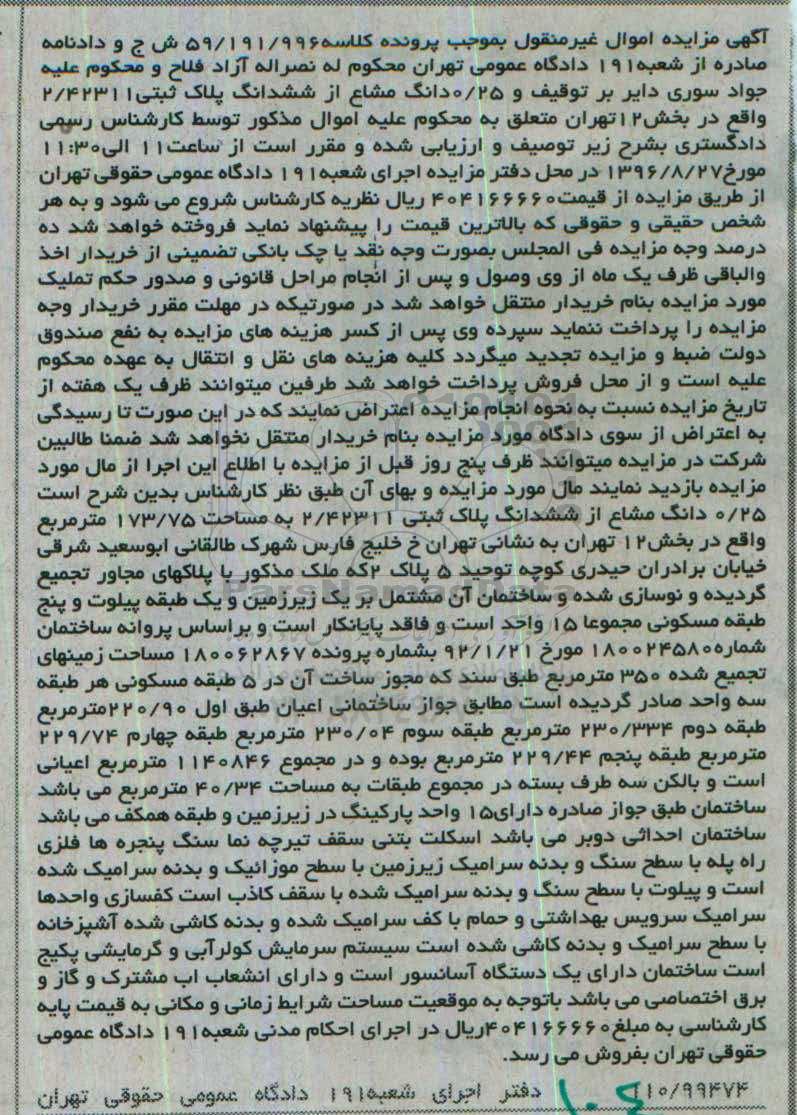 آگهی مزایده اموال غیرمنقول بموجب پرونده کلاسه۵۹/۱۹۱/۹۹۶ ش ج و دادنامه
صادره از شعبه۱۹۱ دادگاه عمومی تهران محکوم له نصراله آزاد فلاح و محکوم علیه
جواد سوری دایر بر توقیف و ۰/۲۵دانگ مشاع از ششدانگ پلاک ثبتی۲/۴۲۳۱۱
واقع در بخش۱۲تهران متعلق به محکوم علیه اموال مذکور توسط کارشناس رسمی
دادگستری بشرح زیر توصیف و ارزیابی شده و مقرر است از ساعت۱۱ الی۱۱:۳۰
مورخ۱۳۹۶/۸/۲۷ در محل دفتر مزایده اجرای شعبه۱۹۱ دادگاه عمومی حقوقی تهران
از طریق مزایده از قیمت۴۰۴۱۶۶۶۶۰ ریال نظریه کارشناس شروع می شود و به هر
شخص حقیقی و حقوقی که بالاترین قیمت را پیشنهاد نماید فروخته خواهد شد ده
درصد وجه مزایده فی المجلس بصورت وجه نقد یا چک بانکی تضمینی از خریدار اخذ
والباقی ظرف یک ماه از وی وصول و پس از انجام مراحل قانونی و صدور حکم تملیک
مورد مزایده بنام خریدار منتقل خواهد شد در صورتیکه در مهلت مقرر خریدار وجه
مزایده را پرداخت ننماید سپرده وی پس از کسر هزینه های مزایده به نفع صندوق
دولت ضبط و مزایده تجدید میگردد کلیه هزینه های نقل و انتقال به عهده محکوم
علیه است و از محل فروش پرداخت خواهد شد طرفین میتوانند ظرف یک هفته از
تاریخ مزایده نسبت به نحوه انجام مزایده اعتراض نمایند که در این صورت تا رسیدگی
به اعتراض از سوی دادگاه مورد مزایده بنام خریدار منتقل نخواهد شد ضمنا طالبین
شرکت در مزایده میتوانند ظرف پنج روز قبل از مزایده با اطلاع این اجرا از مال مورد
مزایده بازدید نمایند مال مورد مزایده و بهای آن طبق نظر کارشناس بدین شرح است
۰/۲۵ دانگ مشاع از ششدانگ پلاک ثبتی ۲/۴۲۳۱۱ به مساحت ۱۷۳/۷۵ مترمربع
واقع در بخش۱۲ تهران به نشانی تهران خ خلیج فارس شهرک طالقانی ابوسعید شرقی
خیابان برادران حیدری کوچه توحید ۵ پلاک ۲که ملک مذکور با پلاکهای مجاور تجمیع
گردیده و نوسازی شده و ساختمان آن مشتمل بر یک زیرزمین و یک طبقه پیلوت و پنج
طبقه مسکونی مجموعا ۱۵ واحد است و فاقد پایانکار است و براساس پروانه ساختمان
شماره۱۸۰۰۲۴۵۸۰ مورخ ۹۲/۱/۲۱ بشماره پرونده ۱۸۰۰۶۲۸۶۷ مساحت زمینهای
تجمیع شده ۳۵۰ مترمربع طبق سند که مجوز ساخت آن در ۵ طبقه مسکونی هر طبقه
سه واحد صادر گردیده است مطابق جواز ساختمانی اعیان طبق اول ۲۲۰/۹۰مترمربع
طبقه دوم ۲۳۰/۳۳۴ مترمربع طبقه سوم ۲۳۰/۰۴ مترمربع طبقه چهارم ۲۲۹/۷۴
مترمربع طبقه پنجم ۲۲۹/۴۴ مترمربع بوده و در مجموع ۱۱۴۰۸۴۶ مترمربع اعیانی
است و بالکن سه طرف بسته در مجموع طبقات به مساحت ۴۰/۳۴ مترمربع می باشد
ساختمان طبق جواز صادره دارای۱۵ واحد پارکینگ در زیرزمین و طبقه همکف می باشد
ساختمان احداثی دوبر می باشد اسکلت بتنی سقف تیرچه نما سنگ پنجره ها فلزی
راه پله با سطح سنگ و بدنه سرامیک زیرزمین با سطح موزائیک و بدنه سرامیک شده
است و پیلوت با سطح سنگ و بدنه سرامیک شده با سقف کاذب است کفسازی واحدها
سرامیک سرویس بهداشتی و حمام با کف سرامیک شده و بدنه کاشی شده آشپزخانه
با سطح سرامیک و بدنه کاشی شده است سیستم سرمایش کولرآبی و گرمایشی پکیج
است ساختمان دارای یک دستگاه آسانسور است و دارای انشعاب اب مشترک و گاز و
برق اختصاصی می باشد باتوجه به موقعیت مساحت شرایط زمانی و مکانی به قیمت پایه
کارشناسی به مبلغ۴۰۴۱۶۶۶۶۰ریال در اجرای احکام مدنی شعبه۱۹۱ دادگاه عمومی
حقوقی تهران بفروش می رسد.
۱۱۰/۹۹۴۷۴ دفتر اجرای شعبه۱۹۱ دادگاه عمومی حقوقی تهران